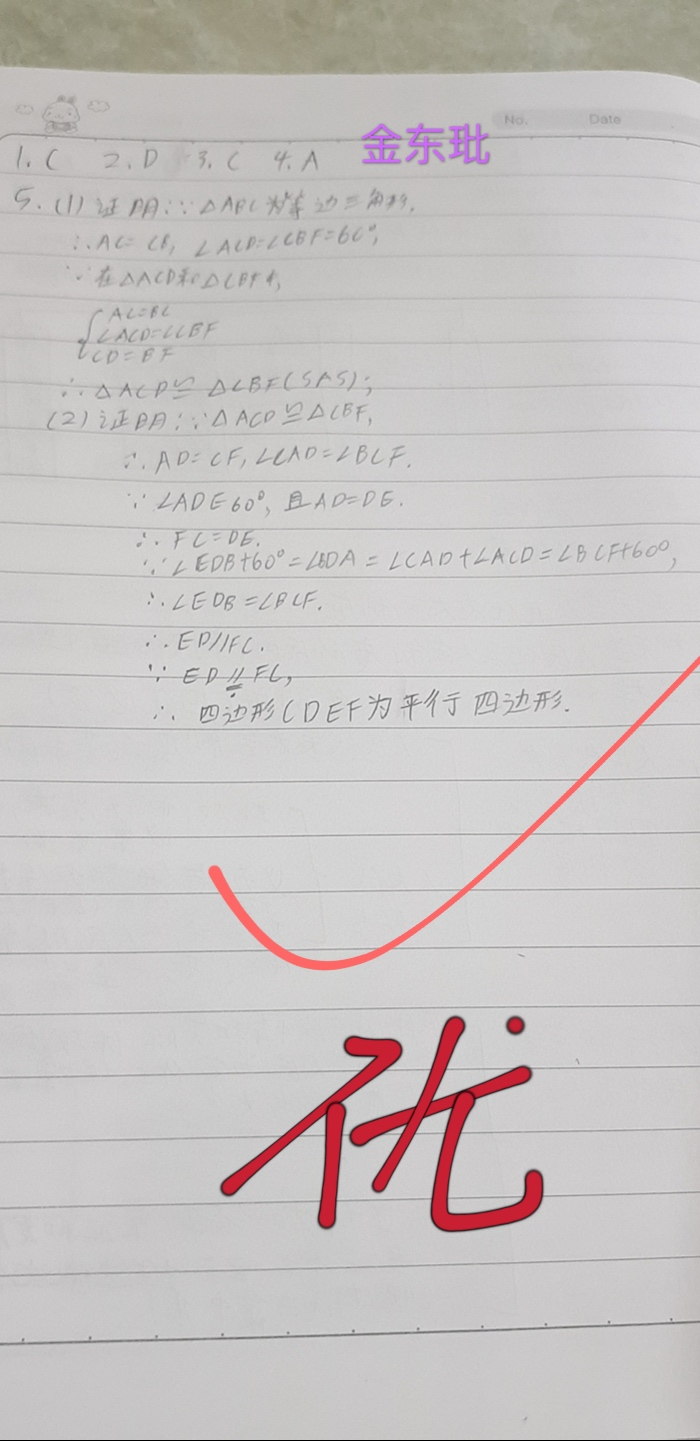 No. Date
1. C 2. D 3. C 4. A 金东玭
5. (1) 证明:∵△ABC为等边三角形,
∴AC=CB, ∠ACD=∠CBF=60°,
∵在△ACD和△CBF中,
AC=BC
∠ACD=∠CBF
CD=BF
∴△ACD≌△CBF(SAS);
(2)证明:∵△ACD≌△CBF,
∴AD=CF, ∠CAD=∠BCF.
∵∠ADE60°, 且AD=DE.
∴FC=DE.
∵∠EDB+60°=∠BDA=∠CAD+∠ACD=∠BCF+60°,
∴∠EDB=∠BCF.
∴ED//FC.
∵ED//FC,
∴四边形CDEF为平行四边形.
优